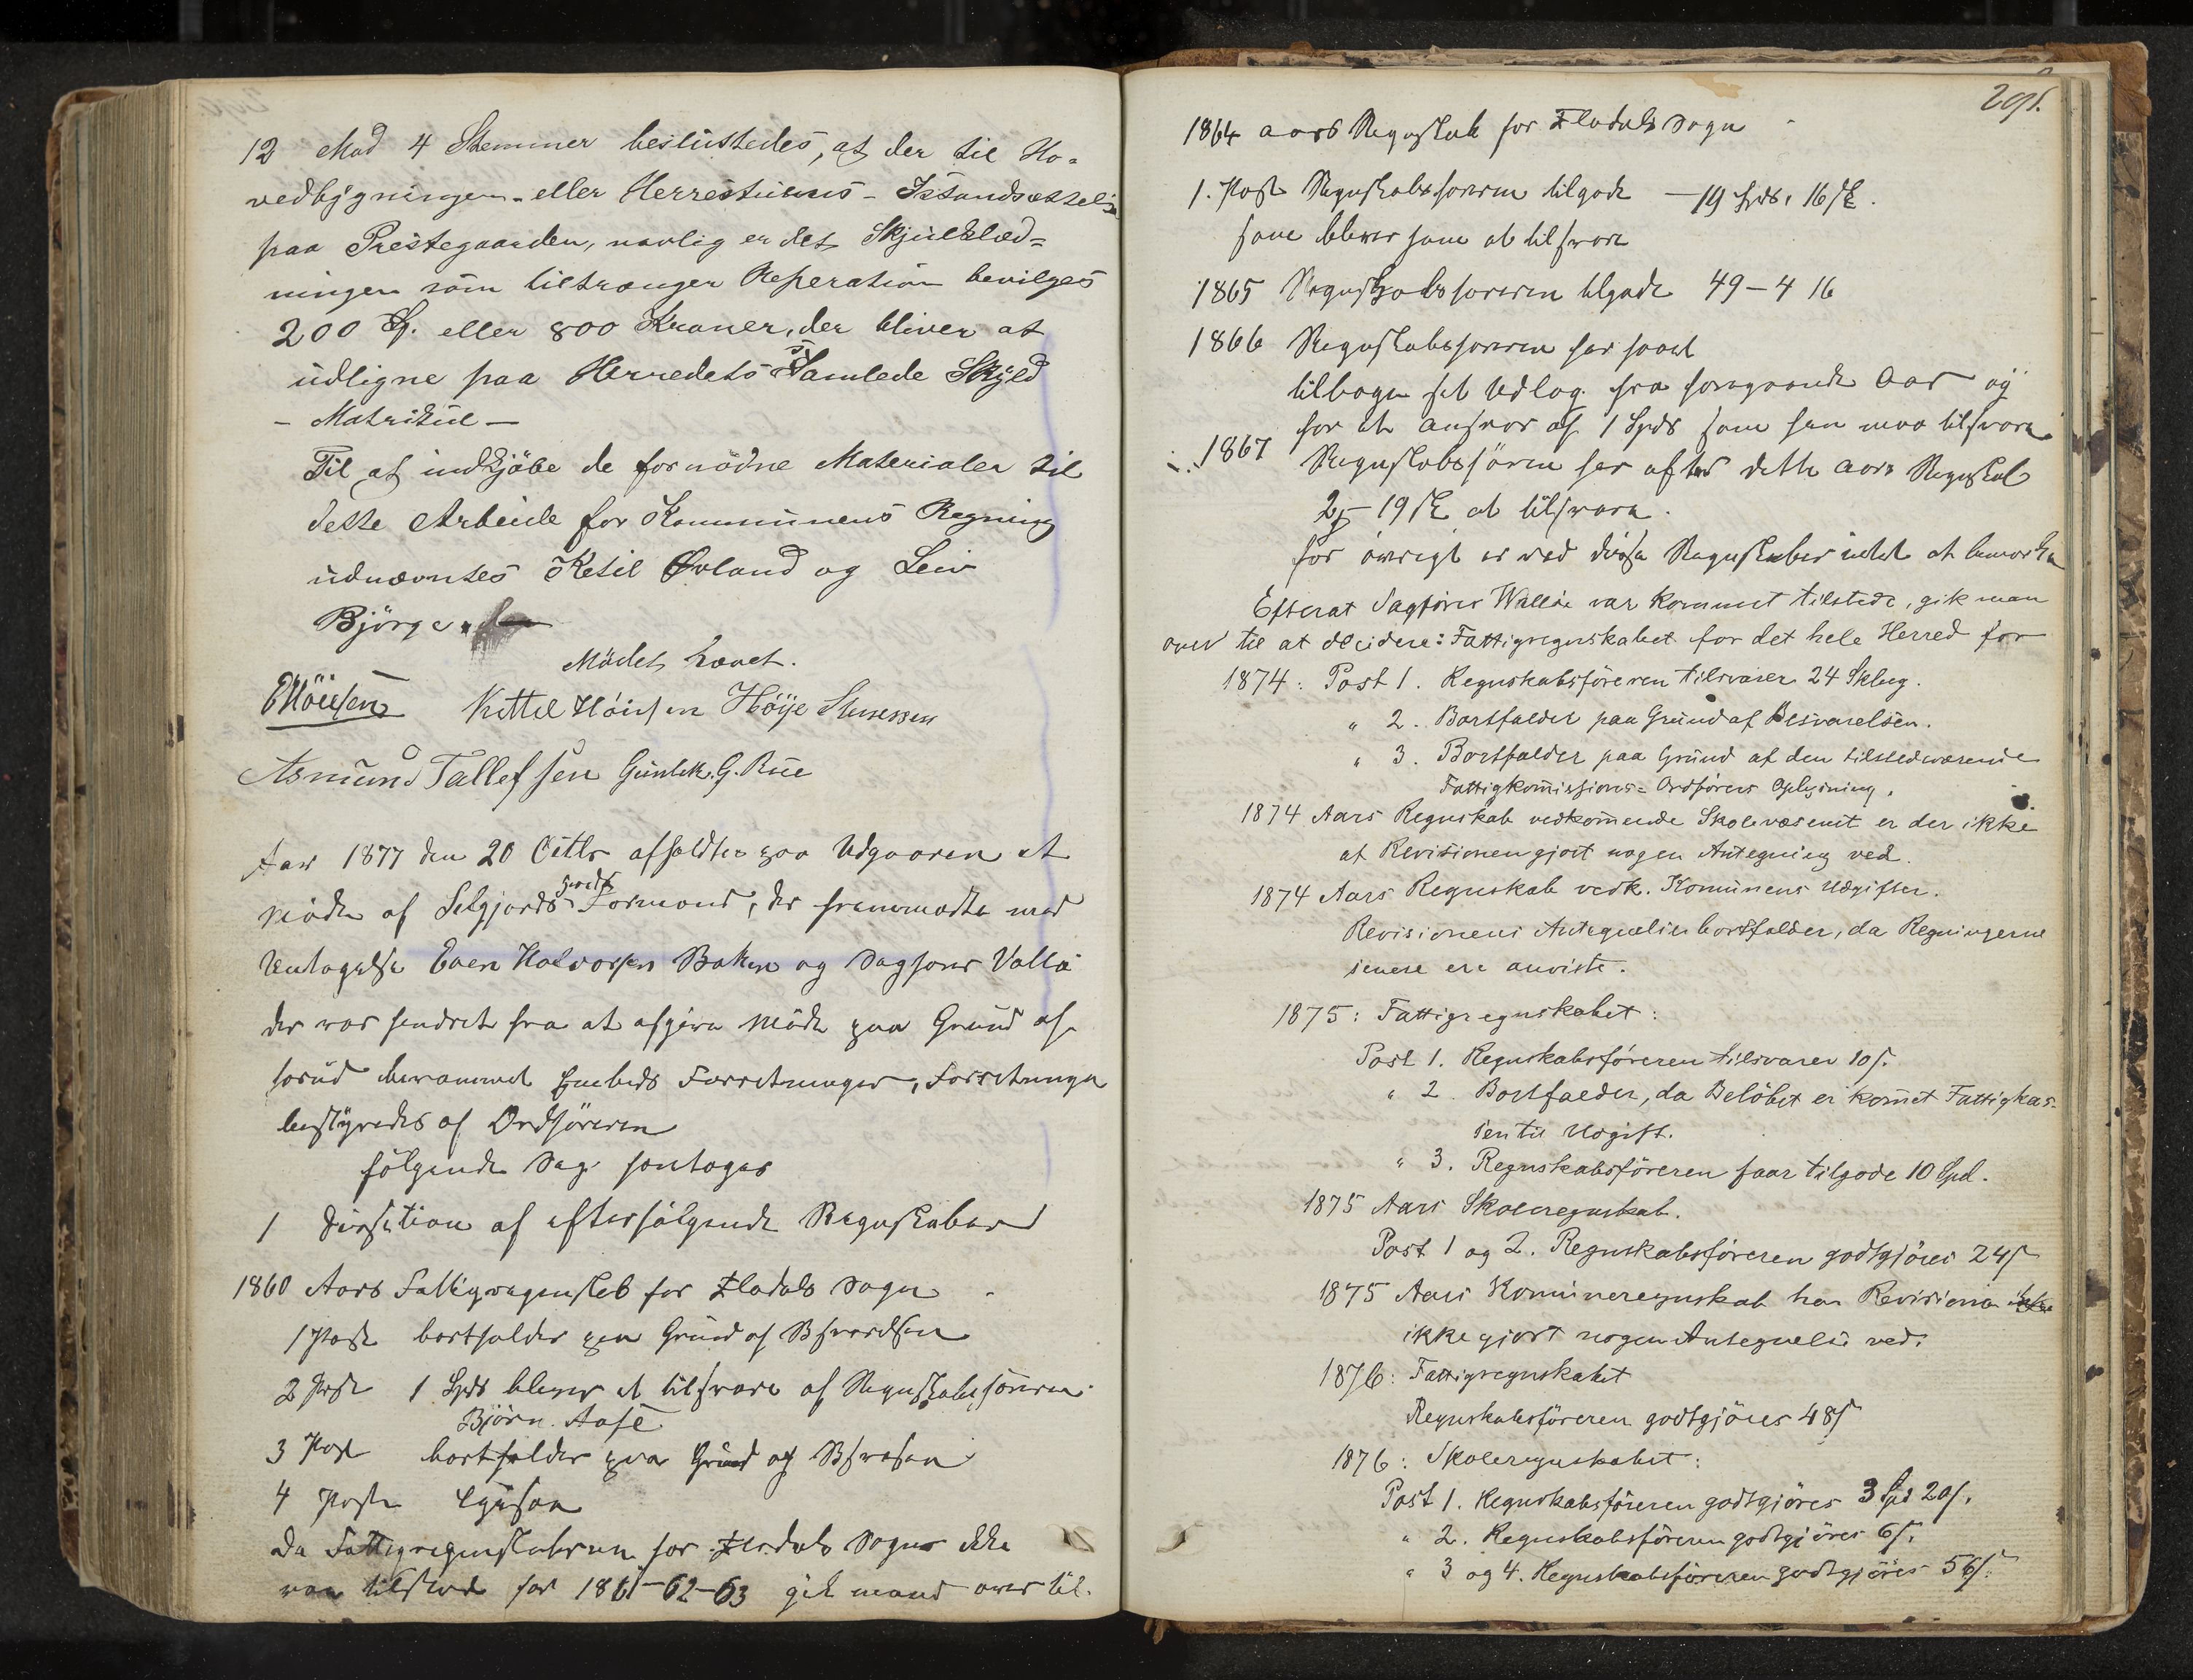 12 Med 4 Stemmer besluttedes, at der til Ho-
vedbygningen - eller Herrestuens - Istandsættelse
paa Prestegaarden, navlig er det Skjulklæd-
ningen som tiltrænger Reperation bevilges
200 Sp. eller 800 Kroner, der bliver at
udligne paa Herredets Samlede Skyld
- Matrikul -
Til at indkjöbe de fornödne Materialer til
dette Arbeide for Kommunens Regning
udnævntes Ketil Øvland og Leiv
Björge.
Mödet hævet.
Kittel Höinsen Höije
Asmund Tallefsen Gunlek. G. Rue
Aar 1877 den 20 afholdtes paa Utgaaren et
Möde af Selgjords Formand, der fremmødte med
Undtagelse Even Halvorsen Bakken og Sagförer Vallö
der var hindret fra at afgive Möde paa Grund af
forud berammet Embeds Forretninger, Forretningen
bestyredes af Ordföreren
fölgende Sag foretoges
1 Desision af efterfölgende Regnskaber
1860 Aars Fattigregnskab for Fladals Sogn
1 Post bortfalder paa Grund af Besvarelsen
2 Post 1 Spd bliver at tilsvare af Regnskabsföreren
Björn Aase
3 Post bortfalder paa Grund af
4 Post ligesaa
Da Fattigregnskaberne for Fladals Sogn ikke
var tilstede for 1861-62-63 gik mand over til
291.
1864 aars Regnskab for Fladals Sogn
1. Post Regnskabsföreren tilgode - 19 Spd. 16 sk.
som bliver ham at tilsvare
1865 Regnskabsföreren tilgode 49-4 16
1866 Regnskabsföreren har faaet
tilbage sit Udlæg fra foregaaende Aar og
for et Ansvar af 1 Spd som han maa tilsvare
1867 Regnskabsföreren har efter dette Aars Regnskab
2 - 19 sk at tilsvare.
for övrigt er ved disse Regnskaber intet at bemærke
Efterat Sagförer Wallöe var kommet tilstede, gik man
over til at decidere: Fattigregnskabet for det hele Herred for
1874: Post 1. Regnskabsföreren tilsvarer 24 Skling.
" 2. Bortfalder paa Grund af Besvarelsen.
" 3. Bortfalder paa Grund af den tilstedeværende
Fattigkommissions-Ordförers Oplysning.
1874 Aars Regnskab vedkommende Skolevæsenet er der ikke
af Revisionen gjort nogen Antegning ved.
1874 Aars Regnskab vedk. Komunens Udgifter.
Revisionens Antegnelser bortfalder, da Regningerne
senere ere anviste.
1875: Fattigregnskabet:
Post 1. Regnskabsföreren tilsvarer 10 s.
" 2. Bortfalder, da Belöbet er komet Fattigkas-
sen til Udgift.
" 3. Regnskabsföreren faar tilgode 10 Spd.
1875 Aars Skoleregnskab.
Post 1 og 2. Regnskabsföreren godtgjöres 24 s
1875 Aars Komuneregnskab har Revisionen
ikke gjort nogen Antegnelse ved.
1876: Fattigregnskabet
Regnskabsföreren godtgjöres 48 s
1876: Skoleregnskabet:
Post 1. Regnskabsföreren godtgjöres 3 Spd 20 s.
" 2. Regnskabsföreren godtgjöres 6 s.
" 3 og 4. Regnskabsföreren godtgjöres 56 s.